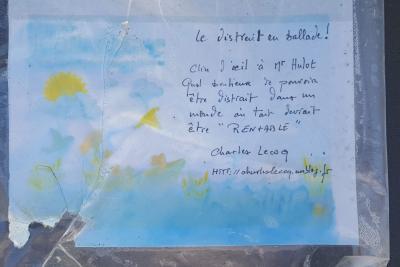 Le distrait en ballade !
Clin d'œil à Mr Hulot
Quel bonheur de pouvoir
être distrait dans un
monde où tout devrait
être "RENTABLE"
Charles Lecoq
HTTP://charleslecoq.unblog.fr